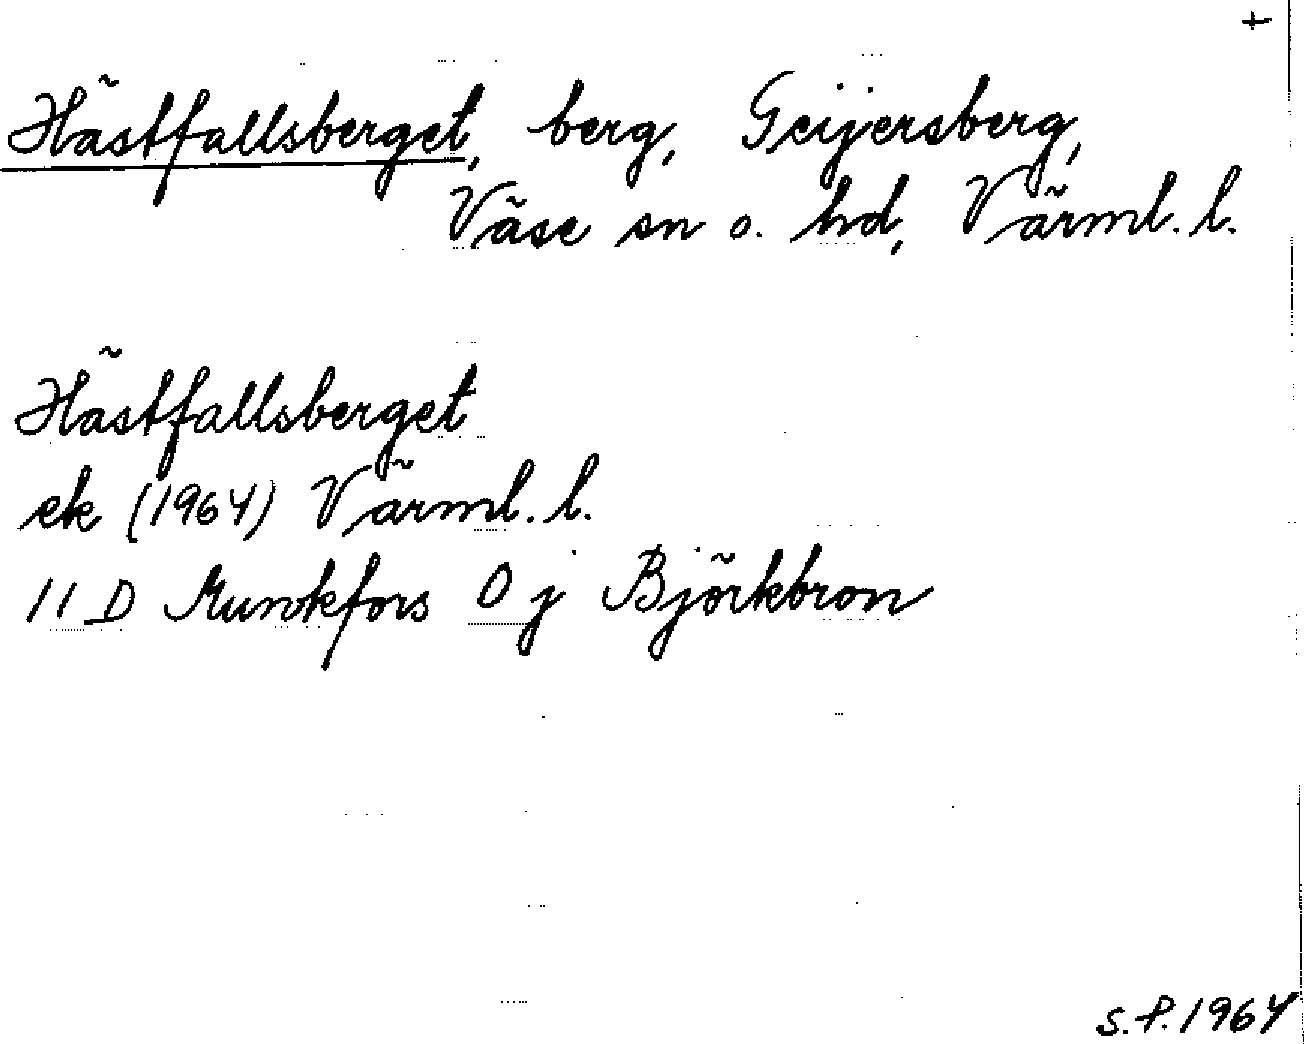 +
Hästfallsberget, berg, Geijersberg,
Väse sn o. hd, Värml. l.
Hästfallsberget
ek (1964) Värml. l.
11 D Munkfors 0 j Björkbron
S.P. 1964